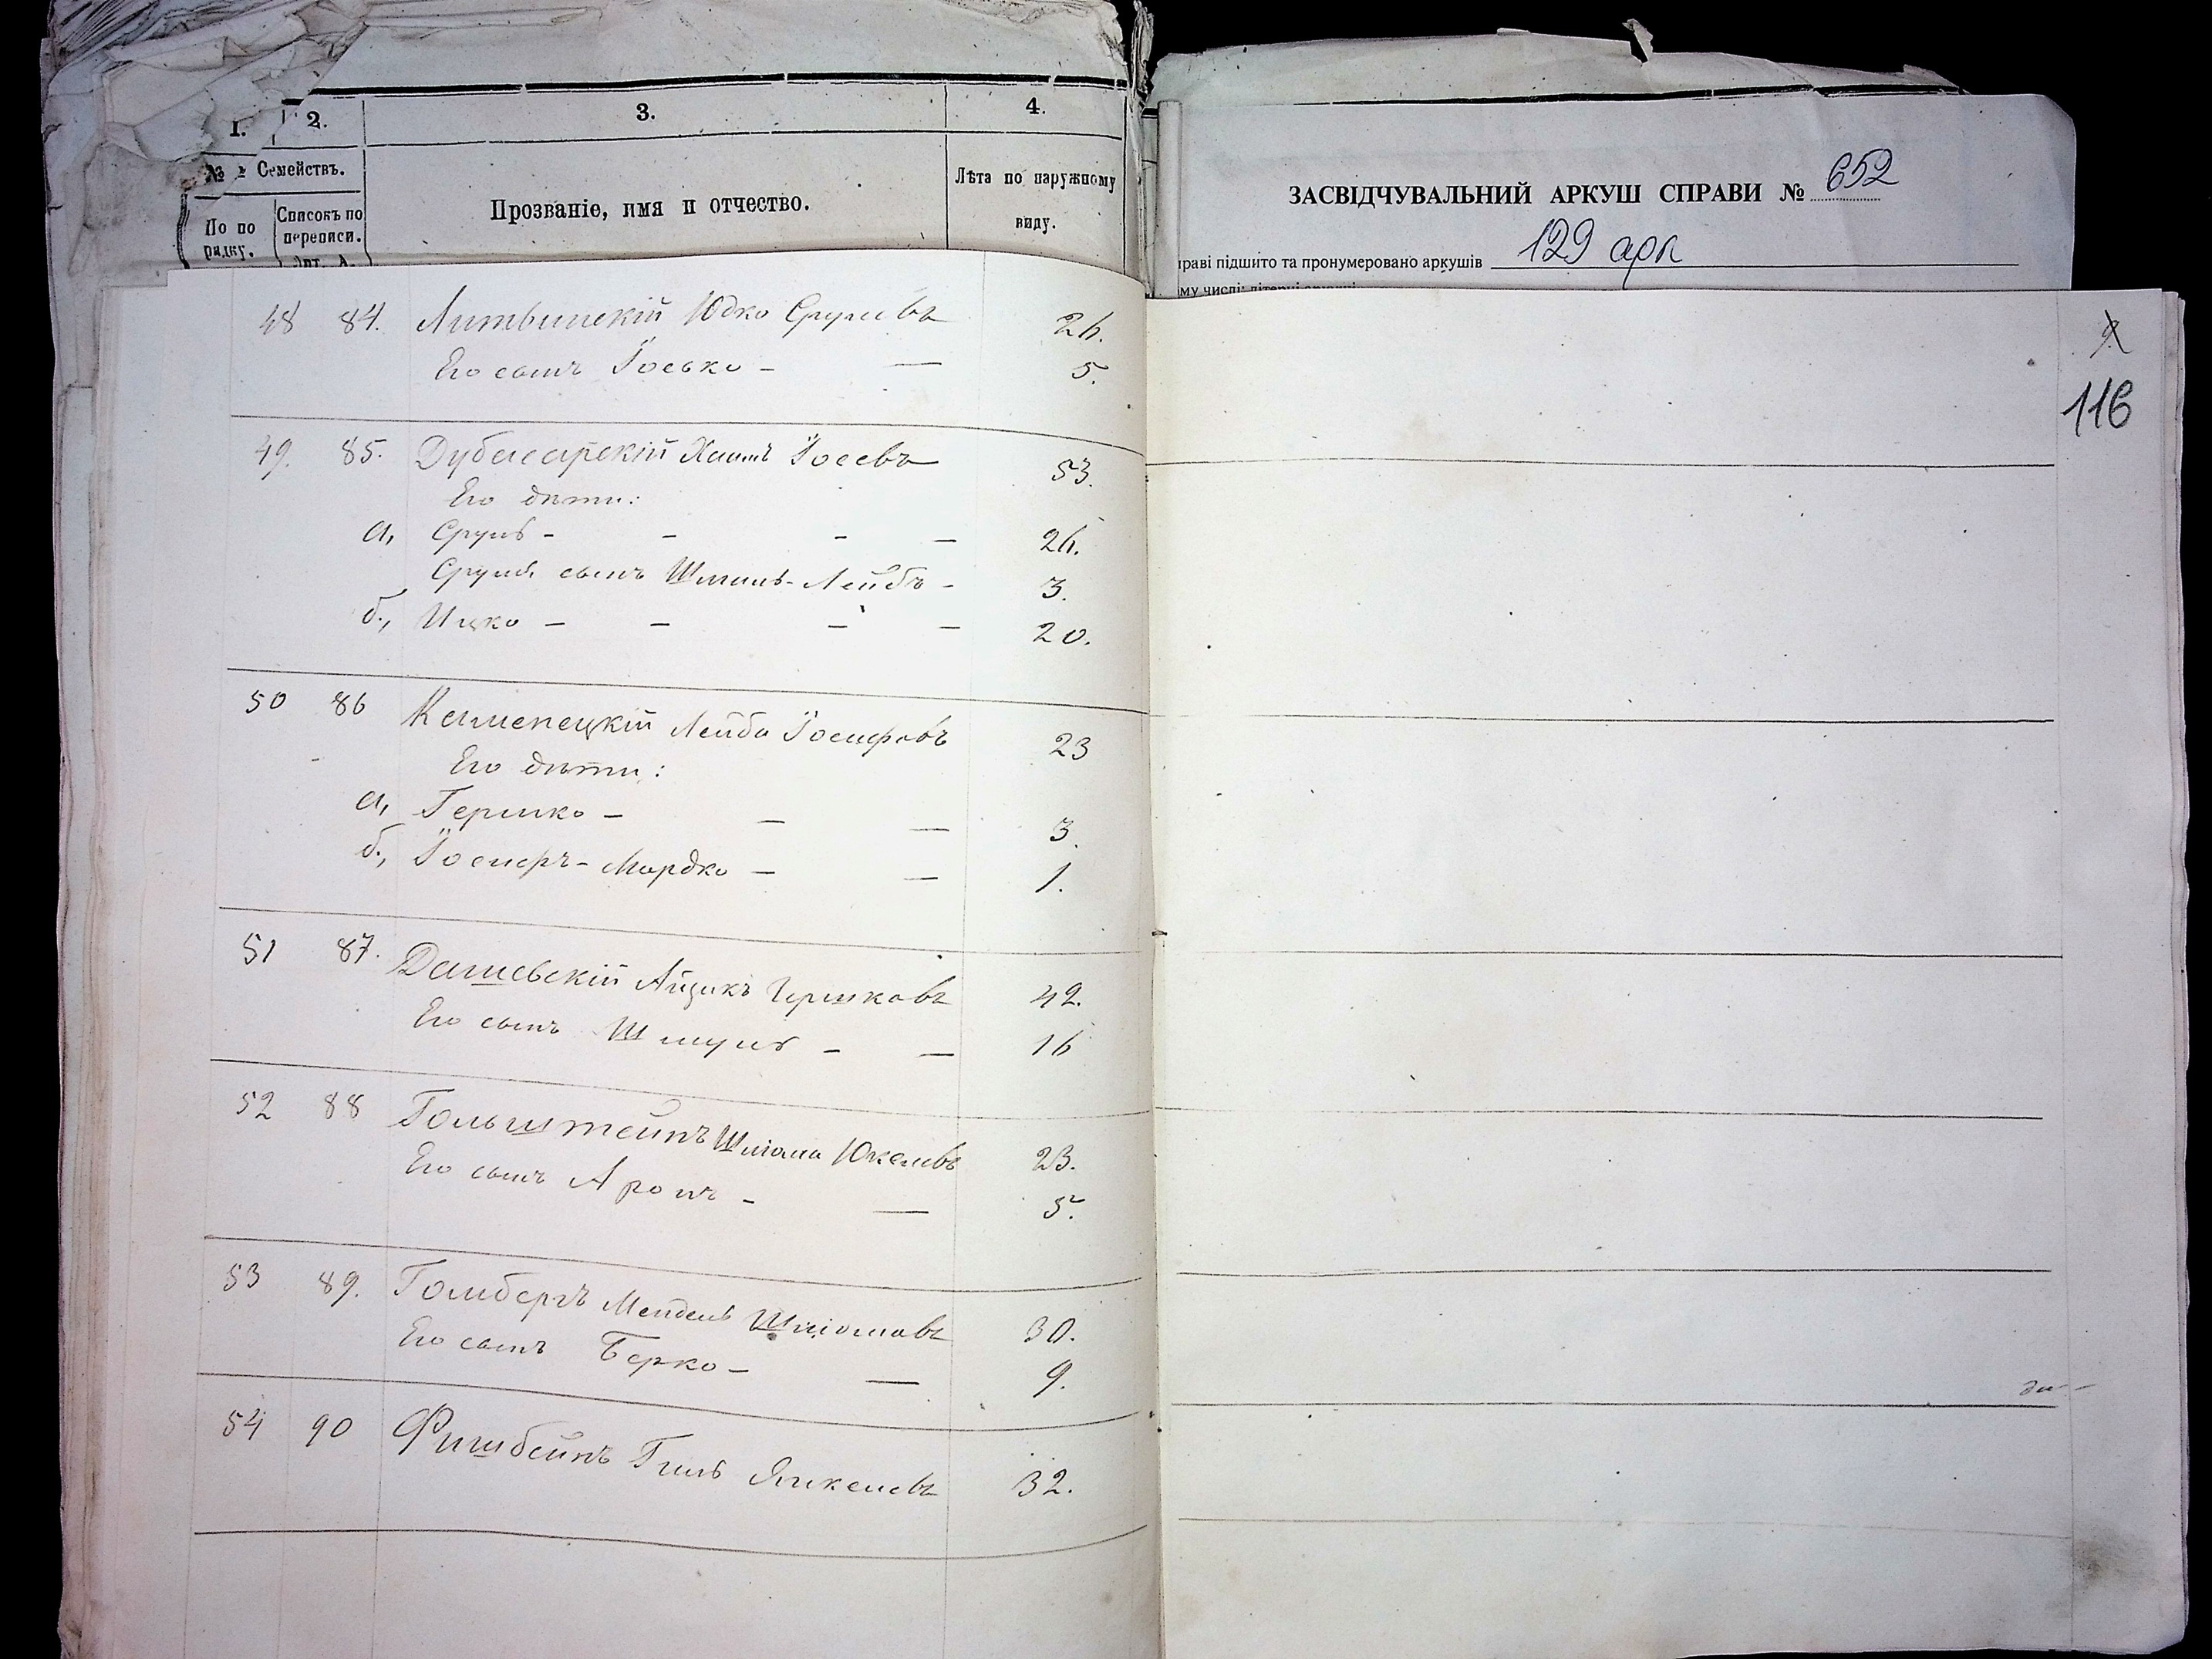 1. 2. 3. 4.
№ Семействъ. Прозваніе, имя и отчество. Лѣта по наружному виду.
По порядку. Списокъ по переписи.
Лит. А.
ЗАСВІДЧУВАЛЬНИЙ АРКУШ СПРАВИ № 652
праві підшито та пронумеровано аркушів 129 арк
му числі:
48 84. Литвинскій Юдко Сруловъ 26.
Его сынъ Іосько - — 5.
49. 85. Дубасарскій Хаимъ Іосевъ 53.
Его дѣти:
а, Сруль - - - — 26.
Сруля сынъ Шмиль-Лейбъ - 3.
б., Ицко — — — — 20.
50 86 Каменецкій Лейба Іосифовъ 23
Его дѣти:
а, Гершко — — — 3.
б., Іосифъ-Мордко — — 1.
51 87. Дашевскій Айзикъ Гершковъ 42.
Его сынъ Шмуль - — 16
52 88 Гольштейнъ Шлёма Юкелевъ 23.
Его сынъ Аронъ - — 5.
53 89. Гольбергъ Мендель Шліомовъ 30.
Его сынъ Берко — — 9.
54 90 Фишбейнъ Гиль Янкелевъ 32.
9
116